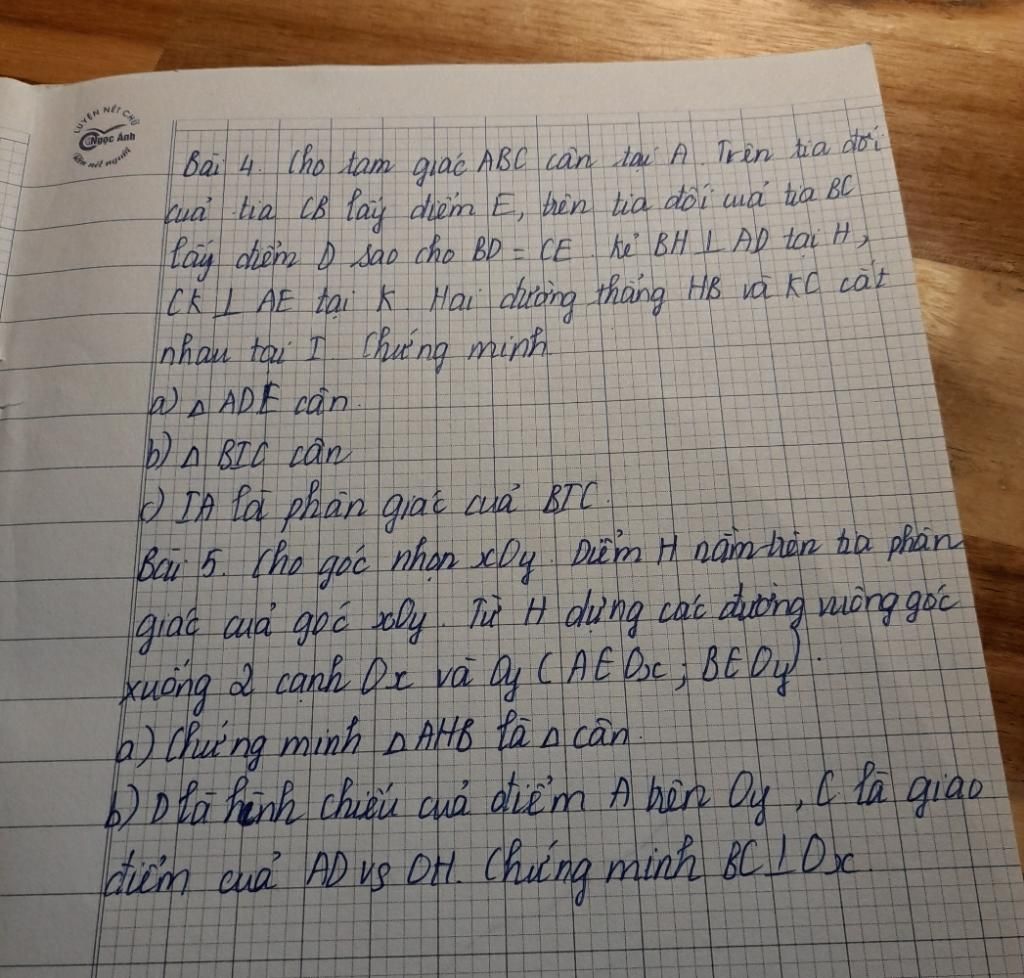 LUYỆN NÉT CHỮ
Ngọc Ánh
Rèn nét người
Bài 4. Cho tam giác ABC cân tại A. Trên tia đối
của tia CB lấy điểm E, trên tia đối của tia BC
lấy điểm D sao cho BD = CE. Kẻ BH ⊥ AD tại H,
CK ⊥ AE tại K. Hai đường thẳng HB và KC cắt
nhau tại I. Chứng minh
a) Δ ADE cân.
b) Δ BIC cân
c) IA là phân giác của BIC.
Bài 5. Cho góc nhọn xOy. Điểm H nằm trên tia phân
giác của góc xOy. Từ H dựng các đường vuông góc
xuống 2 cạnh Ox và Oy (A∈Ox; B∈Oy).
a) Chứng minh Δ AHB là Δ cân.
b) D là hình chiếu của điểm A trên Oy, C là giao
điểm của AD vs OH. Chứng minh BC ⊥ Ox.